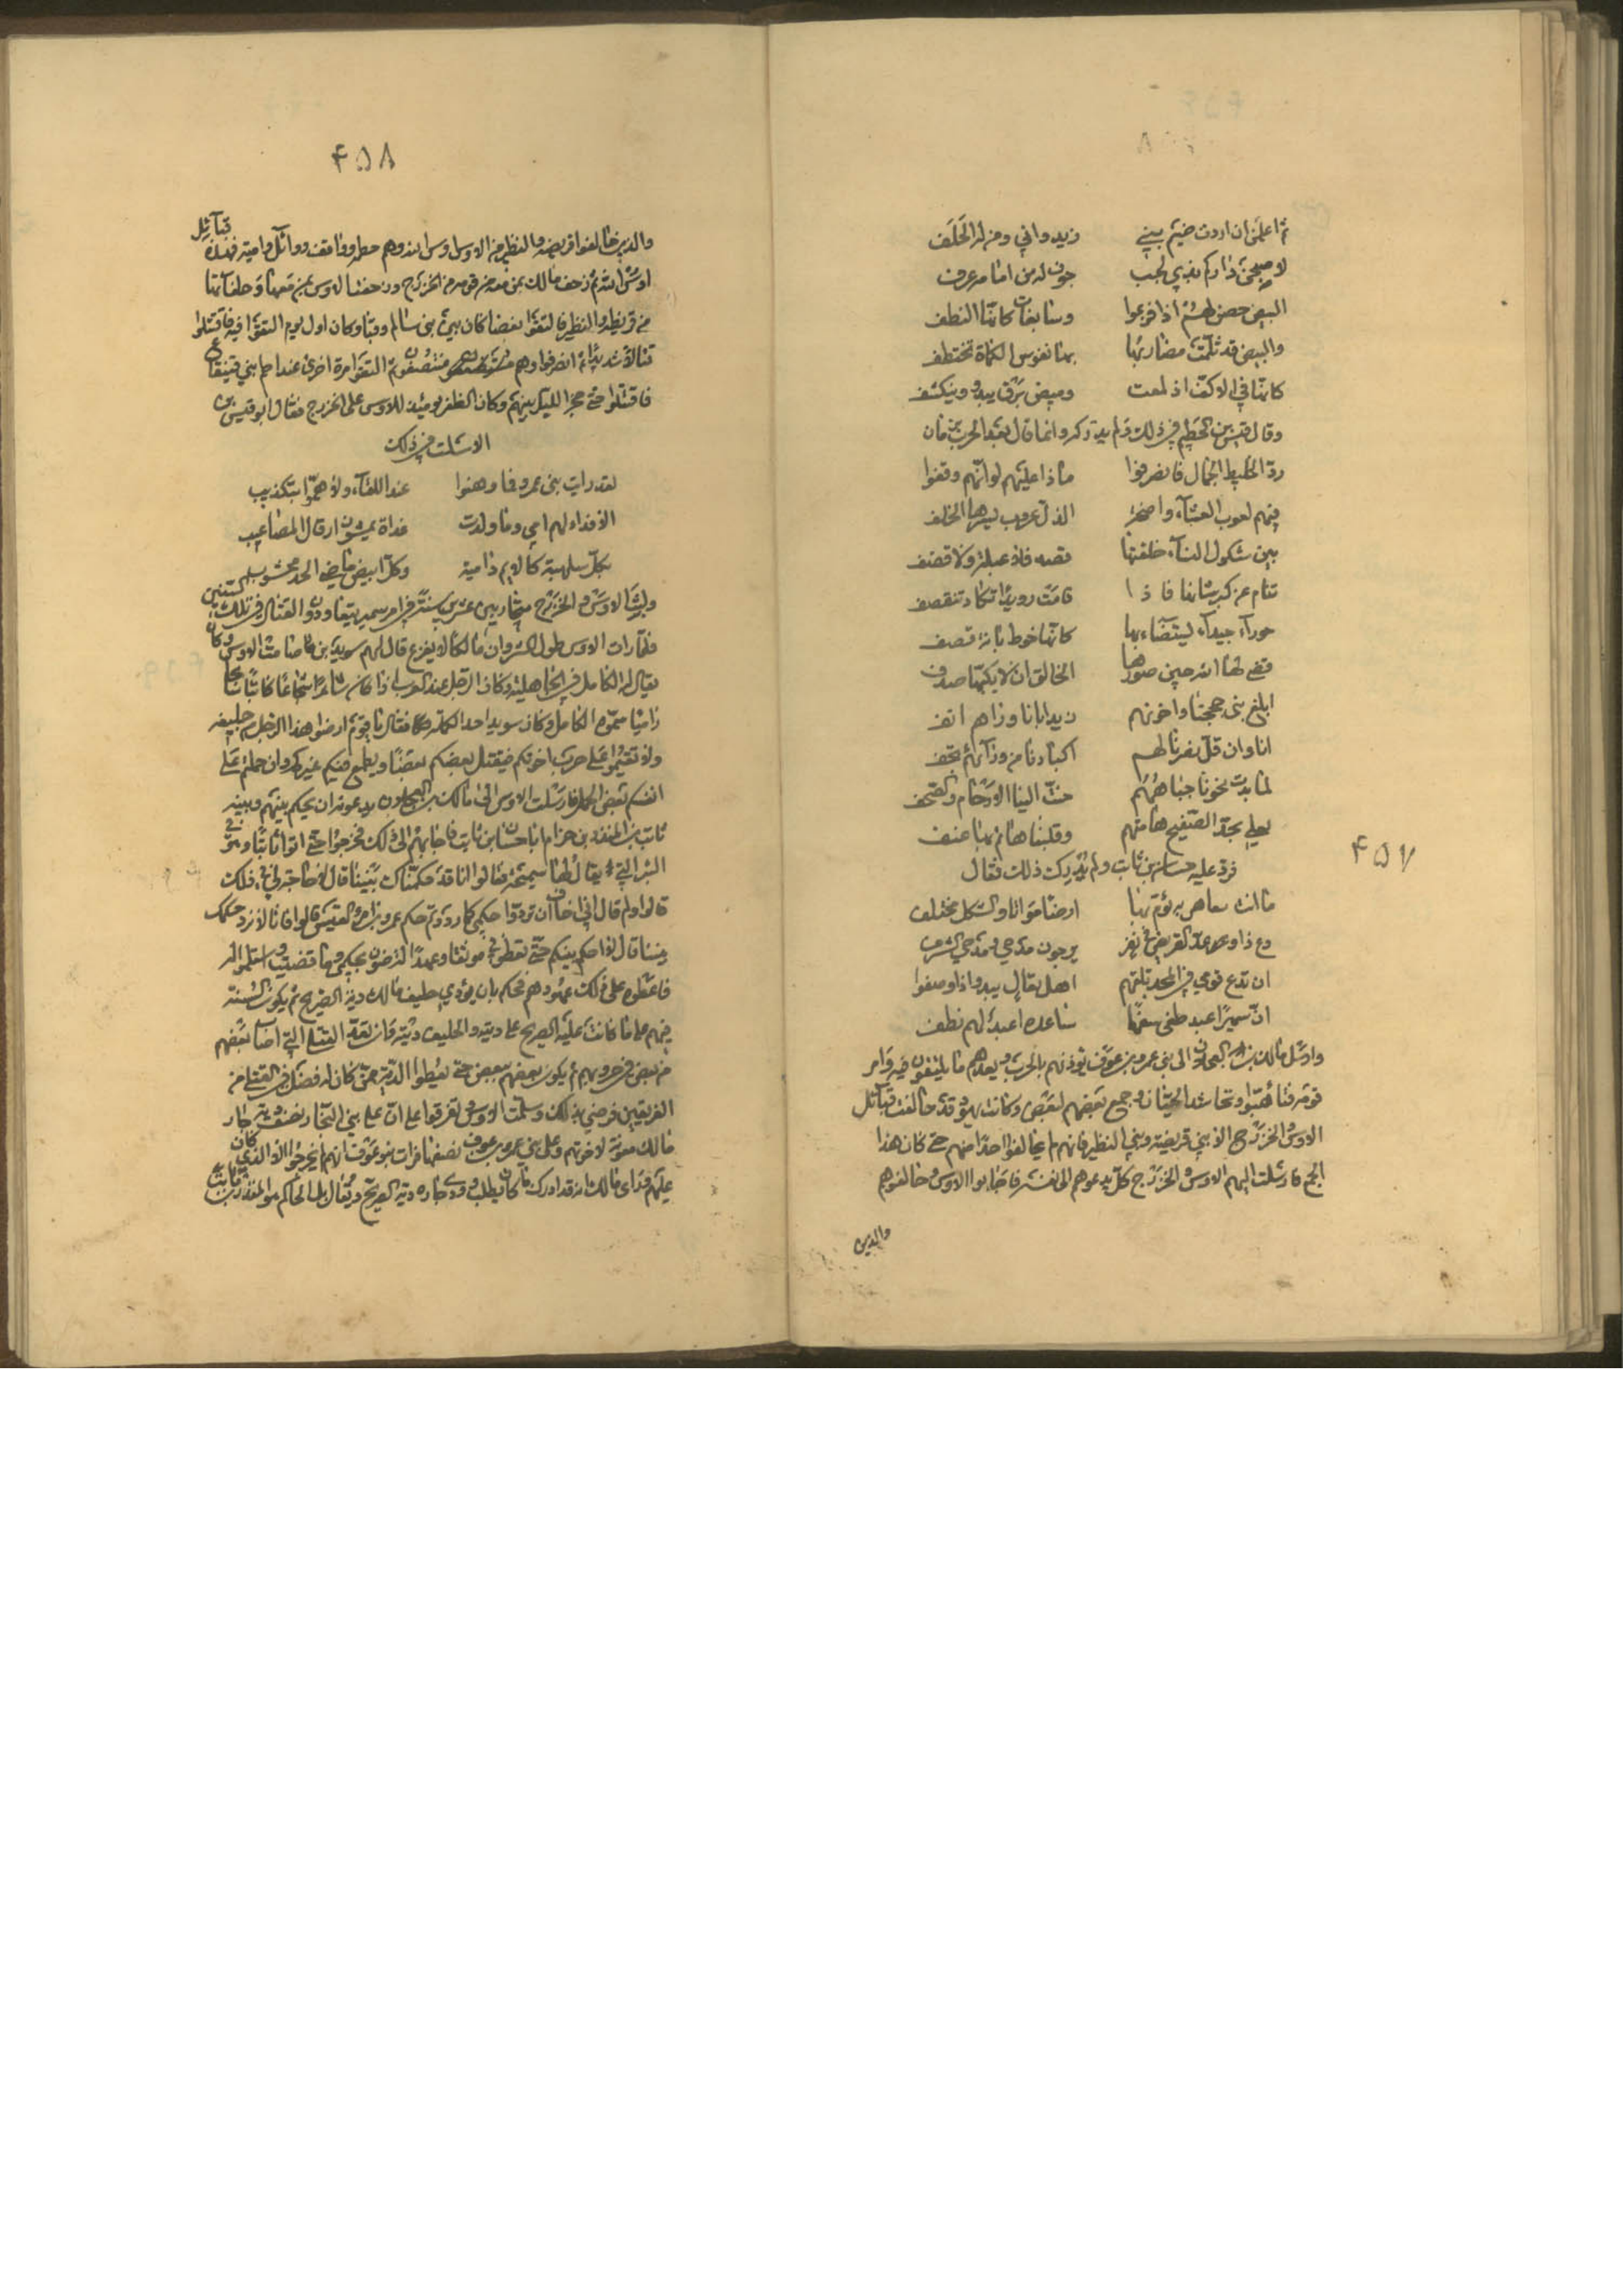 ثم اعلمن ان اردت ضيم بني زيد واني ومن له الحلف
لاصبحن داركم بذي لجب جون له من امامه عزف
البيض حصن لهم اذا فزعوا وسابغات كانها النطف
والبيض قد ثلمت مضاربها بها نفوس الكماة تختطف
كانها في الاكف اذ لمعت وميض برق يبدو وينكسف
وقال قيس بن الخطيم في ذلك ولم يدركه وانما قال بعد الحرب بزمان
رد الخليط الجمال فانصرفوا ماذا عليهم لو انهم وقفوا
فيهم لعوب العشاء الدل عروب يسوها الخلف
بين شكول النساء خلقتها قصد فلا عبلة ولا قضف
تنام عن كبر شانها فاذا قامت رويدا تكاد تنقصف
حوراء جيداء يستضاء بها كانها خوط بانة قصف
قضى لها الله حين صورها الخالق ان لا يكنها سدف
ابلغ بني جحجبا واخوتهم زيدا بانا وراهم انف
انا وان قل نصرنا لهم اكبادنا من ورائهم تجف
لما بدت نحونا جباههم حنت الينا الارحام والصحف
بحد الصفيح هامتهم وفلينا هامهم بنا عنف
فرد عليه حسان بن ثابت ولم يدرك ذلك فقال
دع ذا وعد القريض في نفر يرجون مدحي ومدحي الشرف
ان تدع قومي للمجد تلقهم اهل فعال يبدو اذا وصفوا
ان سميرا عبد طغى سفها ساعده اعبد لهم نطف
وارسل مالك بن العجلان الى بني عمرو بن عوف يؤذنهم بالحرب ويعدهم ما يلتقون فيه وامر
قومه فتهيئوا وتحاشد الحيان وجمع بعضهم لبعض وكانت يهود قد حالفت قبائل
الاوس والخزرج الا بني قريضه وبني النظير فانهم لم يحالفوا احدا منهم حتى كان هذا
الجمع فارسلت اليهم الاوس والخزرج كل يدعوهم الى نفسه فاجابوا الاوس وحالفوهم
والذين
٤٥٧
٤٥٨
والذين حالفوا قريضه والنظير من الاوس اوس الله وهم خطمه وواقف ووائل واميه فهذه قبائل
اوس الله ثم زحف مالك بمن معه من قومه من الخزرج وزحفت الاوس بمن معها وحلفائها
من قريظه والنظير فالتقوا بفضا كان بين بني سالم وقبا وكان اول يوم التقوا فيه فاقتتلوا
قتالا شديدا ثم انصرفوا وهم منتصفون ثم التقوا مرة اخرى عند اطم بني قينقاع
فاقتتلوا حتى حجز الليل بينهم وكان الظفر يومئذ للاوس على الخزرج فقال ابو قيس بن
الاسلت في ذلك
لقد رايت بني عمرو فما وهنوا عند اللقاء ولا هموا بتكذيب
الا فداء لهم امي وما ولدت غداة يمشون ارقال المصاعيب
بكل سلهبة كالايم ماضية وكل ابيض ماضي الحد مخشوب
ولبث الاوس والخزرج متحاربين عشرين سنة في امر سمير يتعاودون القتال في تلك السنين
فلما رات الاوس طول الشر وان مالكا لا ينزع قال لهم سويد بن صامت الاوسي وكان
يقال له الكامل في الجاهلية وكان الرجل عند العرب اذا كان شاعرا شجاعا كاتبا سابحا
راميا سموه الكامل وكان سويد احد الكملة فقال يا قوم ارضوا هذا الرجل من حليفه
ولا تقيموا على حرب اخوتكم فيقتل بعضكم بعضا ويطمع فيكم غيركم وان حملتم على
انفسكم بعض الحمل فارسلت الاوس الى مالك بن العجلان يدعونه ان يحكم بينهم وبينه
ثابت بن المنذر بن حزام ابا حسان بن ثابت فاجابهم الى ذلك فخرجوا حتى اتوا ثابتا وهو في
البئر التي يقال لها سميحة فقالوا انا قد حكمناك بيننا قال لا حاجة لي في ذلك
قالوا ولم قال اني اخاف ان تردوا حكمي كما رددتم حكم عمرو بن امرئ القيس قالوا فانا لا نرد حكمك
بيننا قال لا احكم بينكم حتى تعطوني موثقا وعهدا لترضون بحكمي وما قضيت ولتسلمن له
فاعطوه على ذلك عهودهم فحكم بان يؤدي حليف مالك دية الصريح ثم يكون السنة
فيهم على ما كانت عليه الصريح على ديته والحليف ديته وان تعد القتلى التي اصاب بعضهم
من بعض في حروبهم ثم يكون بعضهم ببعض حتى يعطوا الدية من كان له فضل في القتلى من
الفريقين فرضي بذلك وسلمت الاوس وتفرقوا على ان على بني النجار نصف دية جار
مالك معونة لاخوتهم وعلى بني عمرو بن عوف نصفها فرات بنو عوف انهم لم يخرجوا الا الذي كان
عليهم وراى مالك انه قد ادرك ما كان يطلب وودي جاره دية الصريح ويقال بل الحاكم هو المنذر ابو ثابت